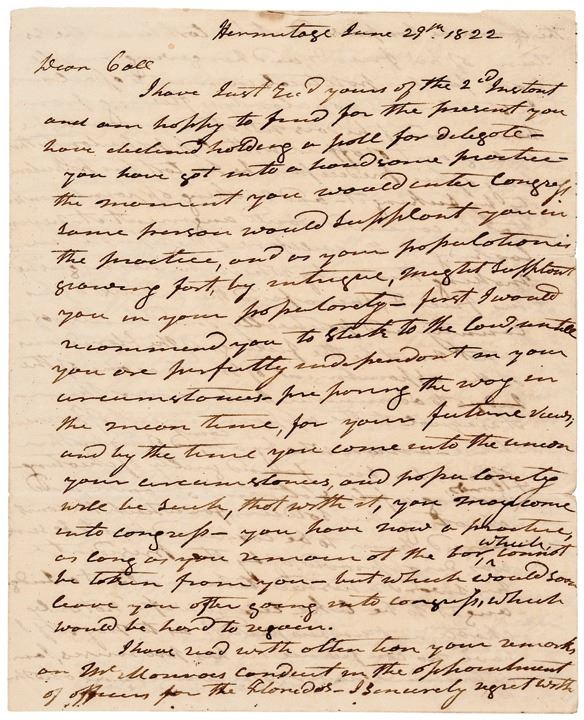 Hermitage June 29th 1822
Dear Call
I have Just Recd yours of the 2d Instant
and am happy to find for the present you
have declined holding a poll for delegate—
you have got into a handsome practice—
the moment you would enter Congress
some person would supplant you in
the practice, and as your population is
growing fast, by intrigue, might supplant
you in your popularity— first I would
recommend you to stick to the law, untill
you are perfectly independant in your
circumstances— preparing the way in
the mean time, for your future views,
and by the time you come into the union
your circumstances, and popularity
will be such, that with it, you may come
into congress— you have now a practice,
as long as you remain at the bar, which cannot
be taken from you— but which would soon
leave you after going into congress, which
would be hard to regain.
I have read with attention your remarks
on Mr Monroes conduct in the appointment
of officers for the Floridas— I sincerely regret with